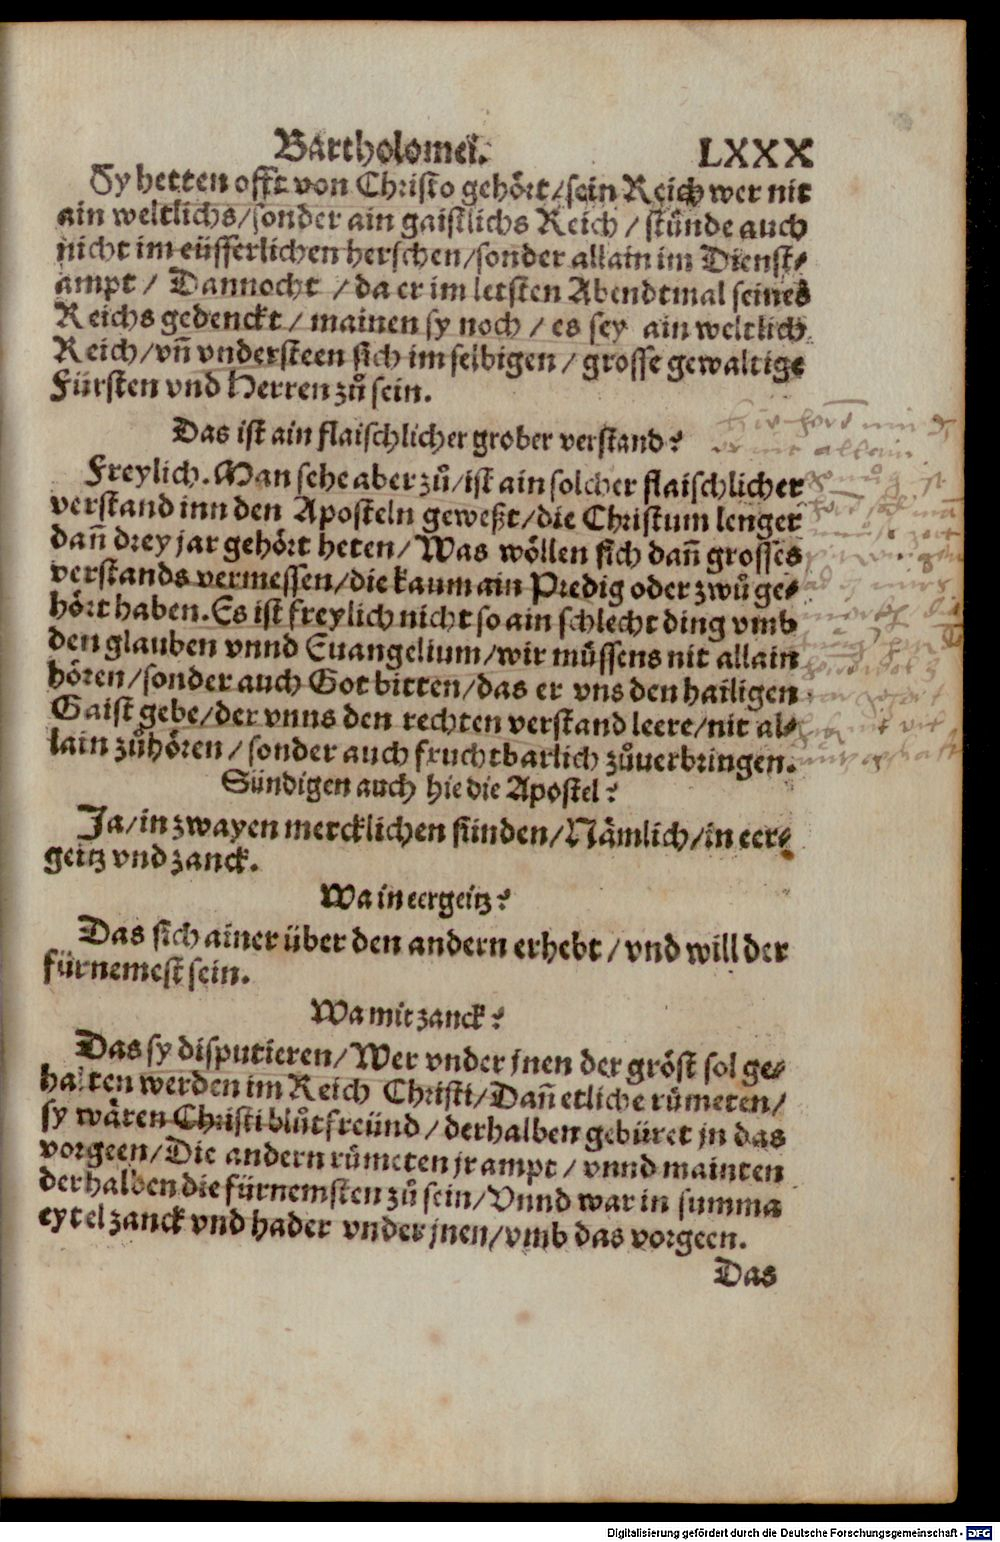 Bartholomei. LXXX
Sy hetten offt von Christo gehört/sein Reich wer nit
ain weltlichs/sonder ain gaistlichs Reich / stünde auch
nicht im eüsserlichen herschen/sonder allain im Dienst⸗
ampt / Dannocht / da er im letsten Abendtmal seines
Reichs gedenckt / mainen sy noch / es sey ain weltlich
Reich/vñ vndersteen sich im selbigen / grosse gewaltige
Fürsten vnd Herren zů sein.
Das ist ain flaischlicher grober verstand?
Freylich. Man sehe aber zů/ist ain solcher flaischlicher
verstand inn den Aposteln geweßt/die Christum lenger
dañ drey jar gehört heten/Was wöllen sich dañ grosses
verstands vermessen/die kaum ain Predig oder zwů ge⸗
hört haben. Es ist freylich nicht so ain schlecht ding vmb
den glauben vnnd Euangelium/wir müssens nit allain
hören/sonder auch Got bitten/das er vns den hailigen
Gaist gebe/der vnns den rechten verstand leere/nit al⸗
lain zůhören / sonder auch fruchtbarlich zůuerbringen.
Sündigen auch hie die Apostel?
Ja/in zwayen mercklichen sünden/Nämlich/in eer⸗
geitz vnd zanck.
Wa in eergeitz?
Das sich ainer über den andern erhebt / vnd will der
fürnemest sein.
Wa mit zanck?
Das sy disputieren/Wer vnder jnen der gröst sol ge⸗
halten werden im Reich Christi/Dañ etliche růmeten/
sy wären Christi blůtfreünd / derhalben gebüret jn das
vorgeen/Die andern růmeten jr ampt / vnnd mainten
derhalben die fürnemsten zů sein/Vnnd war in summa
eytel zanck vnd hader vnder jnen/vmb das vorgeen.
Das
allain
Digitalisierung gefördert durch die Deutsche Forschungsgemeinschaft - DFG